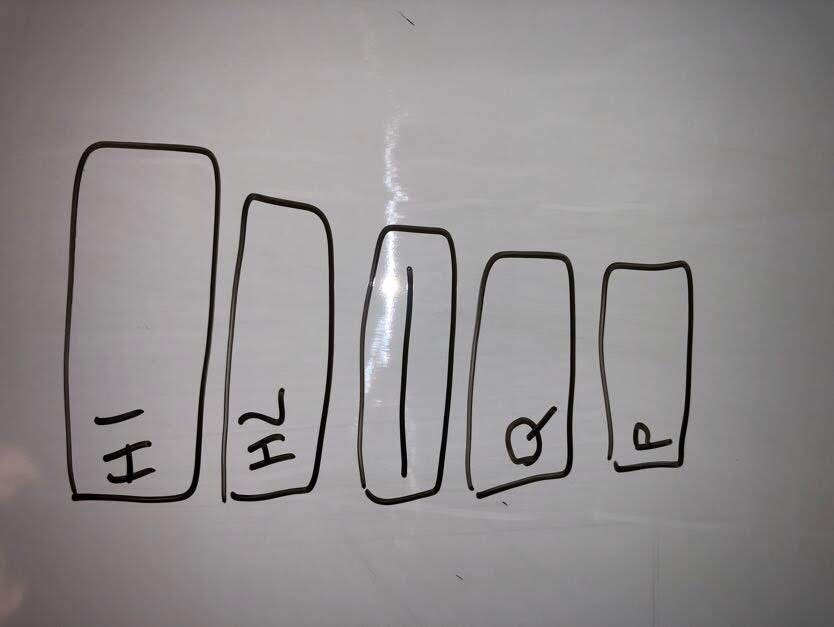 H1
H2
Q
P